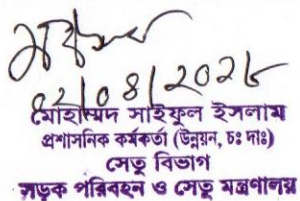 ০২/০৪/২০২৮
মোহাম্মদ সাইফুল ইসলাম
প্রশাসনিক কর্মকর্তা (উন্নয়ন, চঃ দাঃ)
সেতু বিভাগ
সড়ক পরিবহন ও সেতু মন্ত্রণালয়